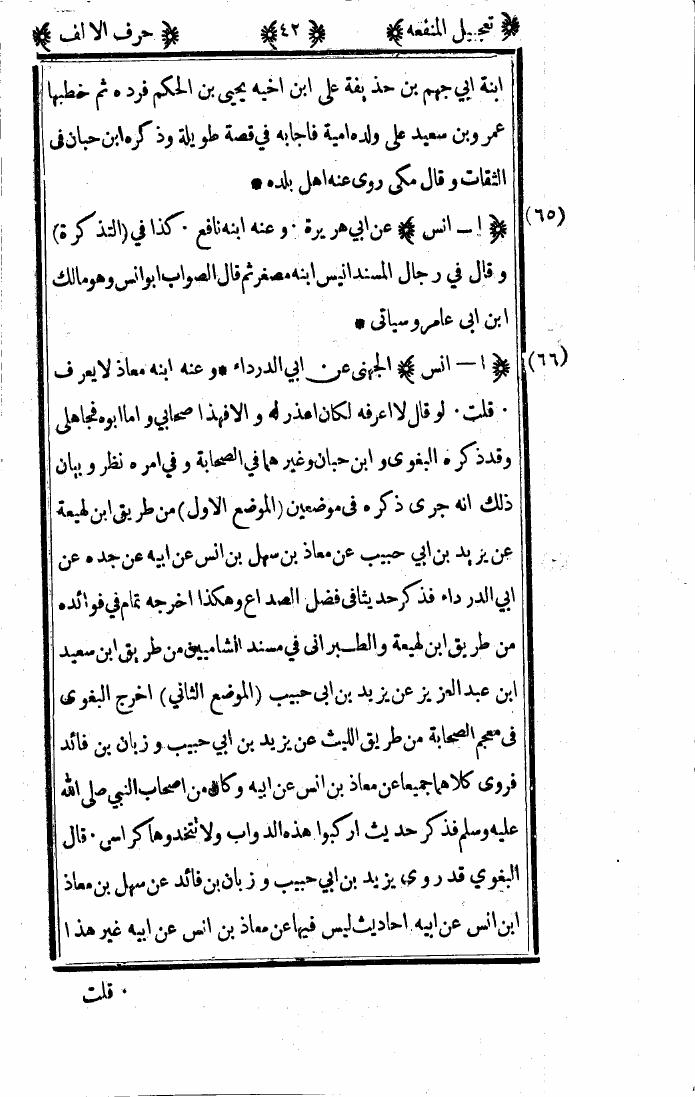 ﴿ تعجيل المنفعه ﴾ ﴿ ٤٢ ﴾ ﴿ حرف الالف ﴾
ابنة ابي جهم بن حذيفة على ابن اخيه يحيى بن الحكم فرده ثم خطبها
عمرو بن سعيد على ولده امية فاجابه في قصة طويلة وذكره ابن حبان فى
الثقات و قال مكى روى عنه اهل بلده *
(٦٥) ﴿ ا — انس ﴾ عن ابي هريرة ٠ و عنه ابنه نافع ٠ كذا في (التذكرة)
و قال في رجال المسند انيس ابنه مصغر ثم قال الصواب ابو انس وهو مالك
ابن ابى عامر وسياتى *
(٦٦) ﴿ ا — انس ﴾ الجهنى عن ابي الدرداء * و عنه ابنه معاذ لا يعرف
٠ قلت ٠ لو قال لا اعرفه لكان اعذر له و الا فهذا صحابي و اما ابوه فجاهلى
وقد ذكره البغوى و ابن حبان وغيرهما في الصحابة و في امره نظر و بيان
ذلك انه جرى ذكره فى موضعين (الموضع الاول) من طريق ابن لهيعة
عن يزيد بن ابي حبيب عن معاذ بن سهل بن انس عن ابيه عن جده عن
ابي الدرداء فذكر حديثا فى فضل الصداع وهكذا اخرجه تمام في فوائده
من طريق ابن لهيعة والطبرانى في مسند الشاميين من طريق ابن سعيد
ابن عبد العزيز عن يزيد بن ابى حبيب (الموضع الثاني) اخرج البغوى
فى معجم الصحابة من طريق الليث عن يزيد بن ابي حبيب و زبان بن فائد
فروى كلاهما جميعا عن معاذ بن انس عن ابيه وكان من اصحاب النبي صلى الله
عليه وسلم فذكر حديث اركبوا هذه الدواب ولا تتخذوها كراسى ٠ قال
البغوي قد روى يزيد بن ابي حبيب و زبان بن فائد عن سهل بن معاذ
ابن انس عن ابيه احاديث ليس فيها عن معاذ بن انس عن ابيه غير هذا ا
٠ قلت